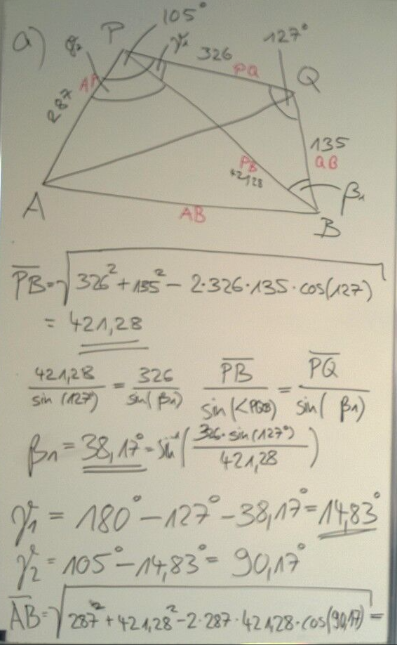 a)
105°
P
γ₂
γ₁
326
127°
PQ
Q
AP
287
135
QB
PB
421,28
β₁
A
AB
B
PB = √326² + 135² − 2·326·135·cos(127)
= 421,28
421,28 / sin(127) = 326 / sin(β₁) PB / sin(<PQB) = PQ / sin(β₁)
β₁ = 38,17° = sin⁻¹(326·sin(127°) / 421,28)
γ₁ = 180° − 127° − 38,17° = 14,83°
γ₂ = 105° − 14,83° = 90,17°
AB = √287² + 421,28² − 2·287·421,28·cos(90,17) =